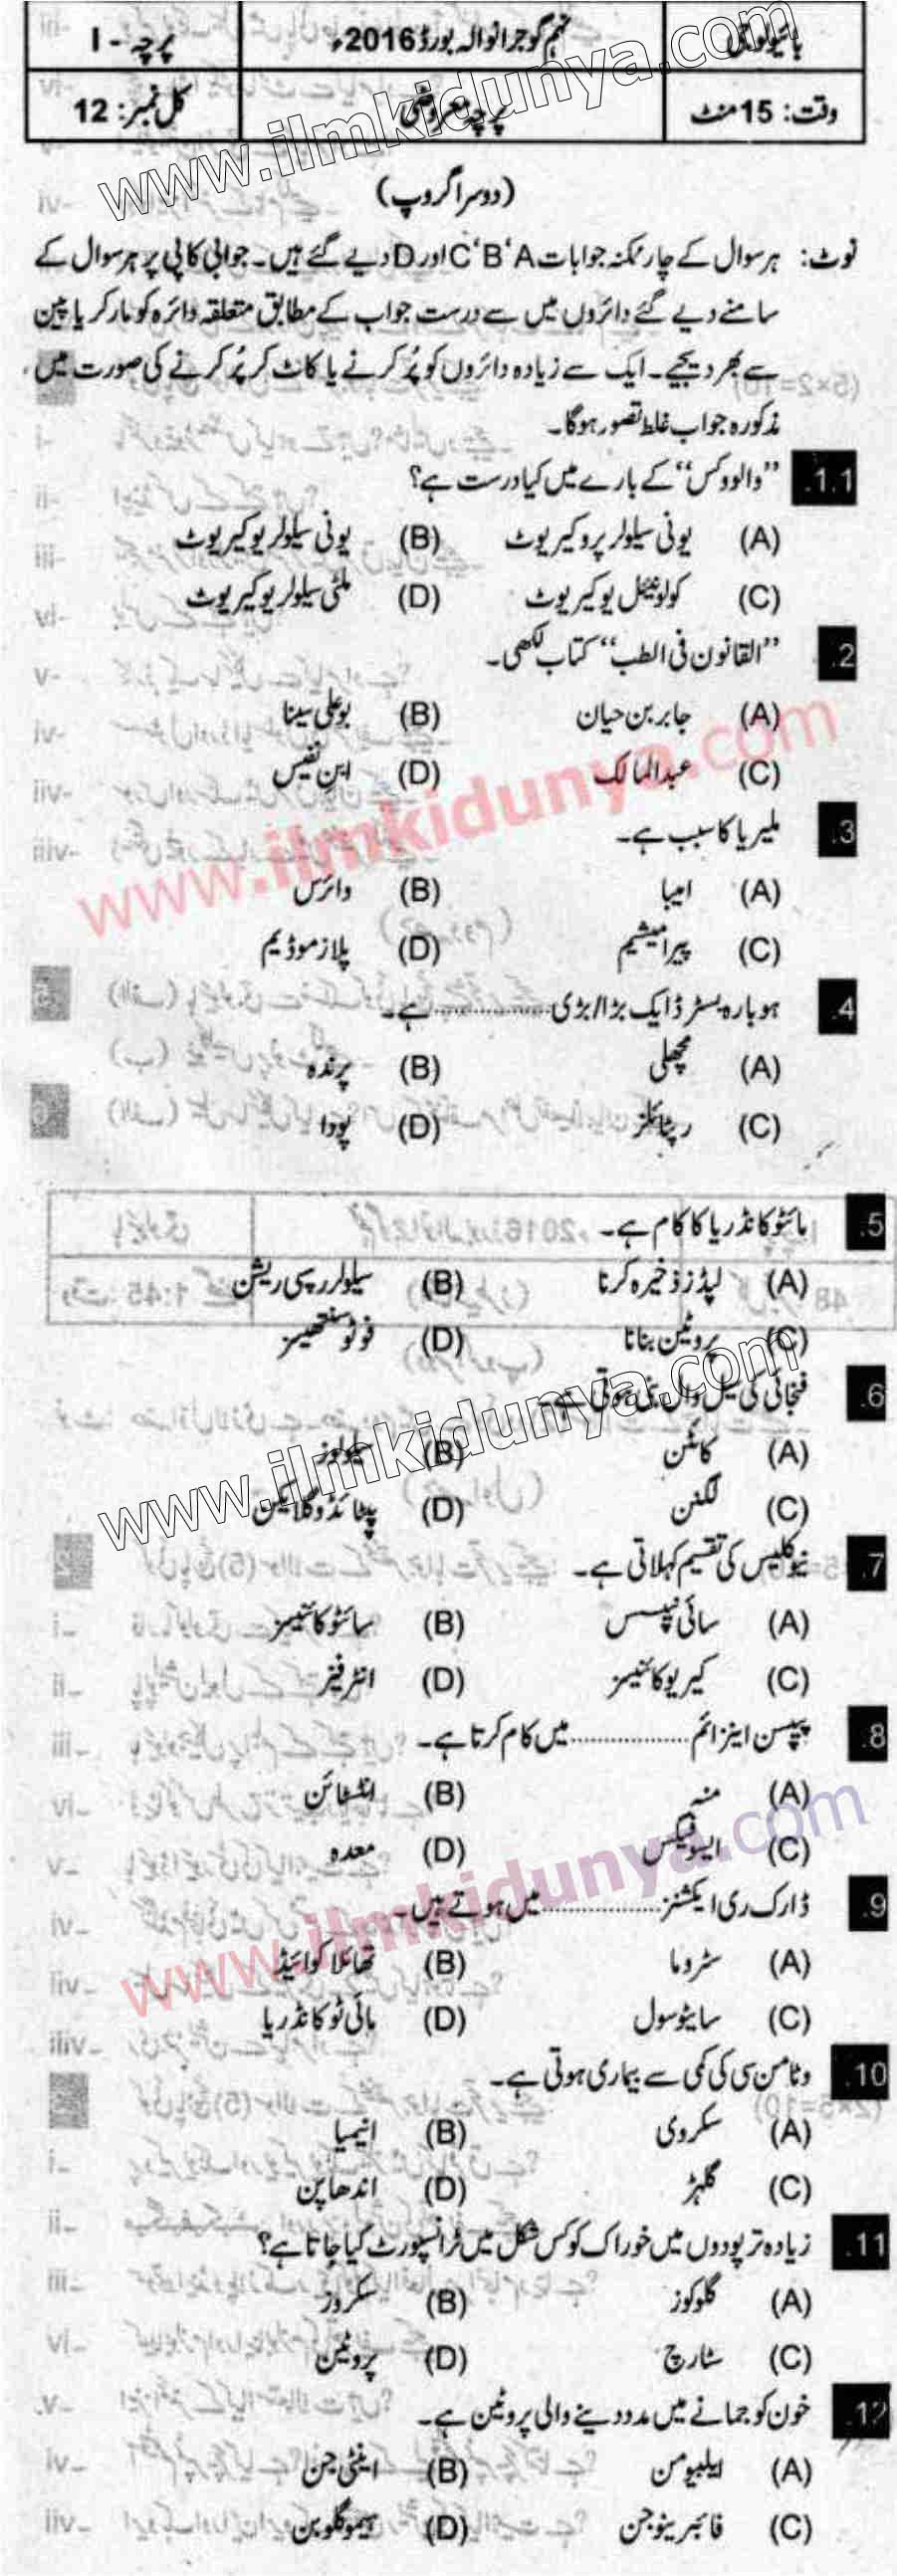 بائیولوجی نہم گوجرانوالہ بورڈ 2016ء پرچہ - I
وقت: 15 منٹ پرچہ معروضی کل نمبر: 12
(دوسرا گروپ)
نوٹ: ہر سوال کے چار ممکنہ جوابات C'B'A اور D دیے گئے ہیں۔ جوابی کاپی پر ہر سوال کے
سامنے دیے گئے دائروں میں سے درست جواب کے مطابق متعلقہ دائرہ کو مارکر یا پین
سے بھر دیجیے۔ ایک سے زیادہ دائروں کو پُر کرنے یا کاٹ کر پُر کرنے کی صورت میں
مذکورہ جواب غلط تصور ہوگا۔
1.1. ”والووکس“ کے بارے میں کیا درست ہے؟
(A) یونی سیلولر پروکیریوٹ (B) یونی سیلولر یوکیریوٹ
(C) کولونیئل یوکیریوٹ (D) ملٹی سیلولر یوکیریوٹ
2. ”القانون فی الطب“ کتاب لکھی۔
(A) جابر بن حیان (B) بو علی سینا
(C) عبدالمالک (D) ابن نفیس
3. ملیریا کا سبب ہے۔
(A) امیبا (B) وائرس
(C) پیرامیشیم (D) پلازموڈیم
4. ہوبارہ بسٹرڈ ایک بڑا/بڑی ............... ہے۔
(A) مچھلی (B) پرندہ
(C) ریپٹائلز (D) پودا
5. مائٹوکانڈریا کا کام ہے۔
(A) لپڈز ذخیرہ کرنا (B) سیلولر رسپی ریشن
(C) پروٹین بنانا (D) فوٹو سنتھیسز
6. فنجائی کی سیل وال بنی ہوتی ہے۔
(A) کائٹن (B) سیلولوز
(C) لگنن (D) پیپٹائڈوگلائیکن
7. نیوکلئیس کی تقسیم کہلاتی ہے۔
(A) سائی نیپسس (B) سائٹوکائنیسز
(C) کیریوکائنیسز (D) انٹرفیز
8. پیپسن اینزائم ............... میں کام کرتا ہے۔
(A) منہ (B) انٹسٹائن
(C) ایسوفیگس (D) معدہ
9. ڈارک ری ایکشنز ............... میں ہوتے ہیں۔
(A) سٹروما (B) تھائلاکوائیڈ
(C) سائیٹوسول (D) مائی ٹوکانڈریا
10. وٹامن سی کی کمی سے بیماری ہوتی ہے۔
(A) سکروی (B) انیمیا
(C) گلہڑ (D) اندھاپن
11. زیادہ تر پودوں میں خوراک کو کس شکل میں ٹرانسپورٹ کیا جاتا ہے؟
(A) گلوکوز (B) سکروز
(C) سٹارچ (D) پروٹین
12. خون کو جمانے میں مدد دینے والی پروٹین ہے۔
(A) ایلبیومن (B) اینٹی جن
(C) فائبرینوجن (D) ہیموگلوبن
www.ilmkidunya.com
www.ilmkidunya.com
www.ilmkidunya.com
www.ilmkidunya.com